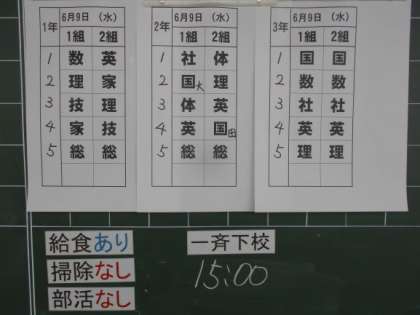 1年 6月9日 (水)
1組 2組
1 数 英
2 理 家
3 技 理
4 家 技
5 総 総
2年 6月9日 (水)
1組 2組
1 社 体
2 国大 理
3 体 英
4 英 国田
5 総 総
3年 6月9日 (水)
1組 2組
1 国 国
2 数 数
3 社 社
4 英 英
5 理 理
給食あり
掃除なし
部活なし
一斉下校
15:00